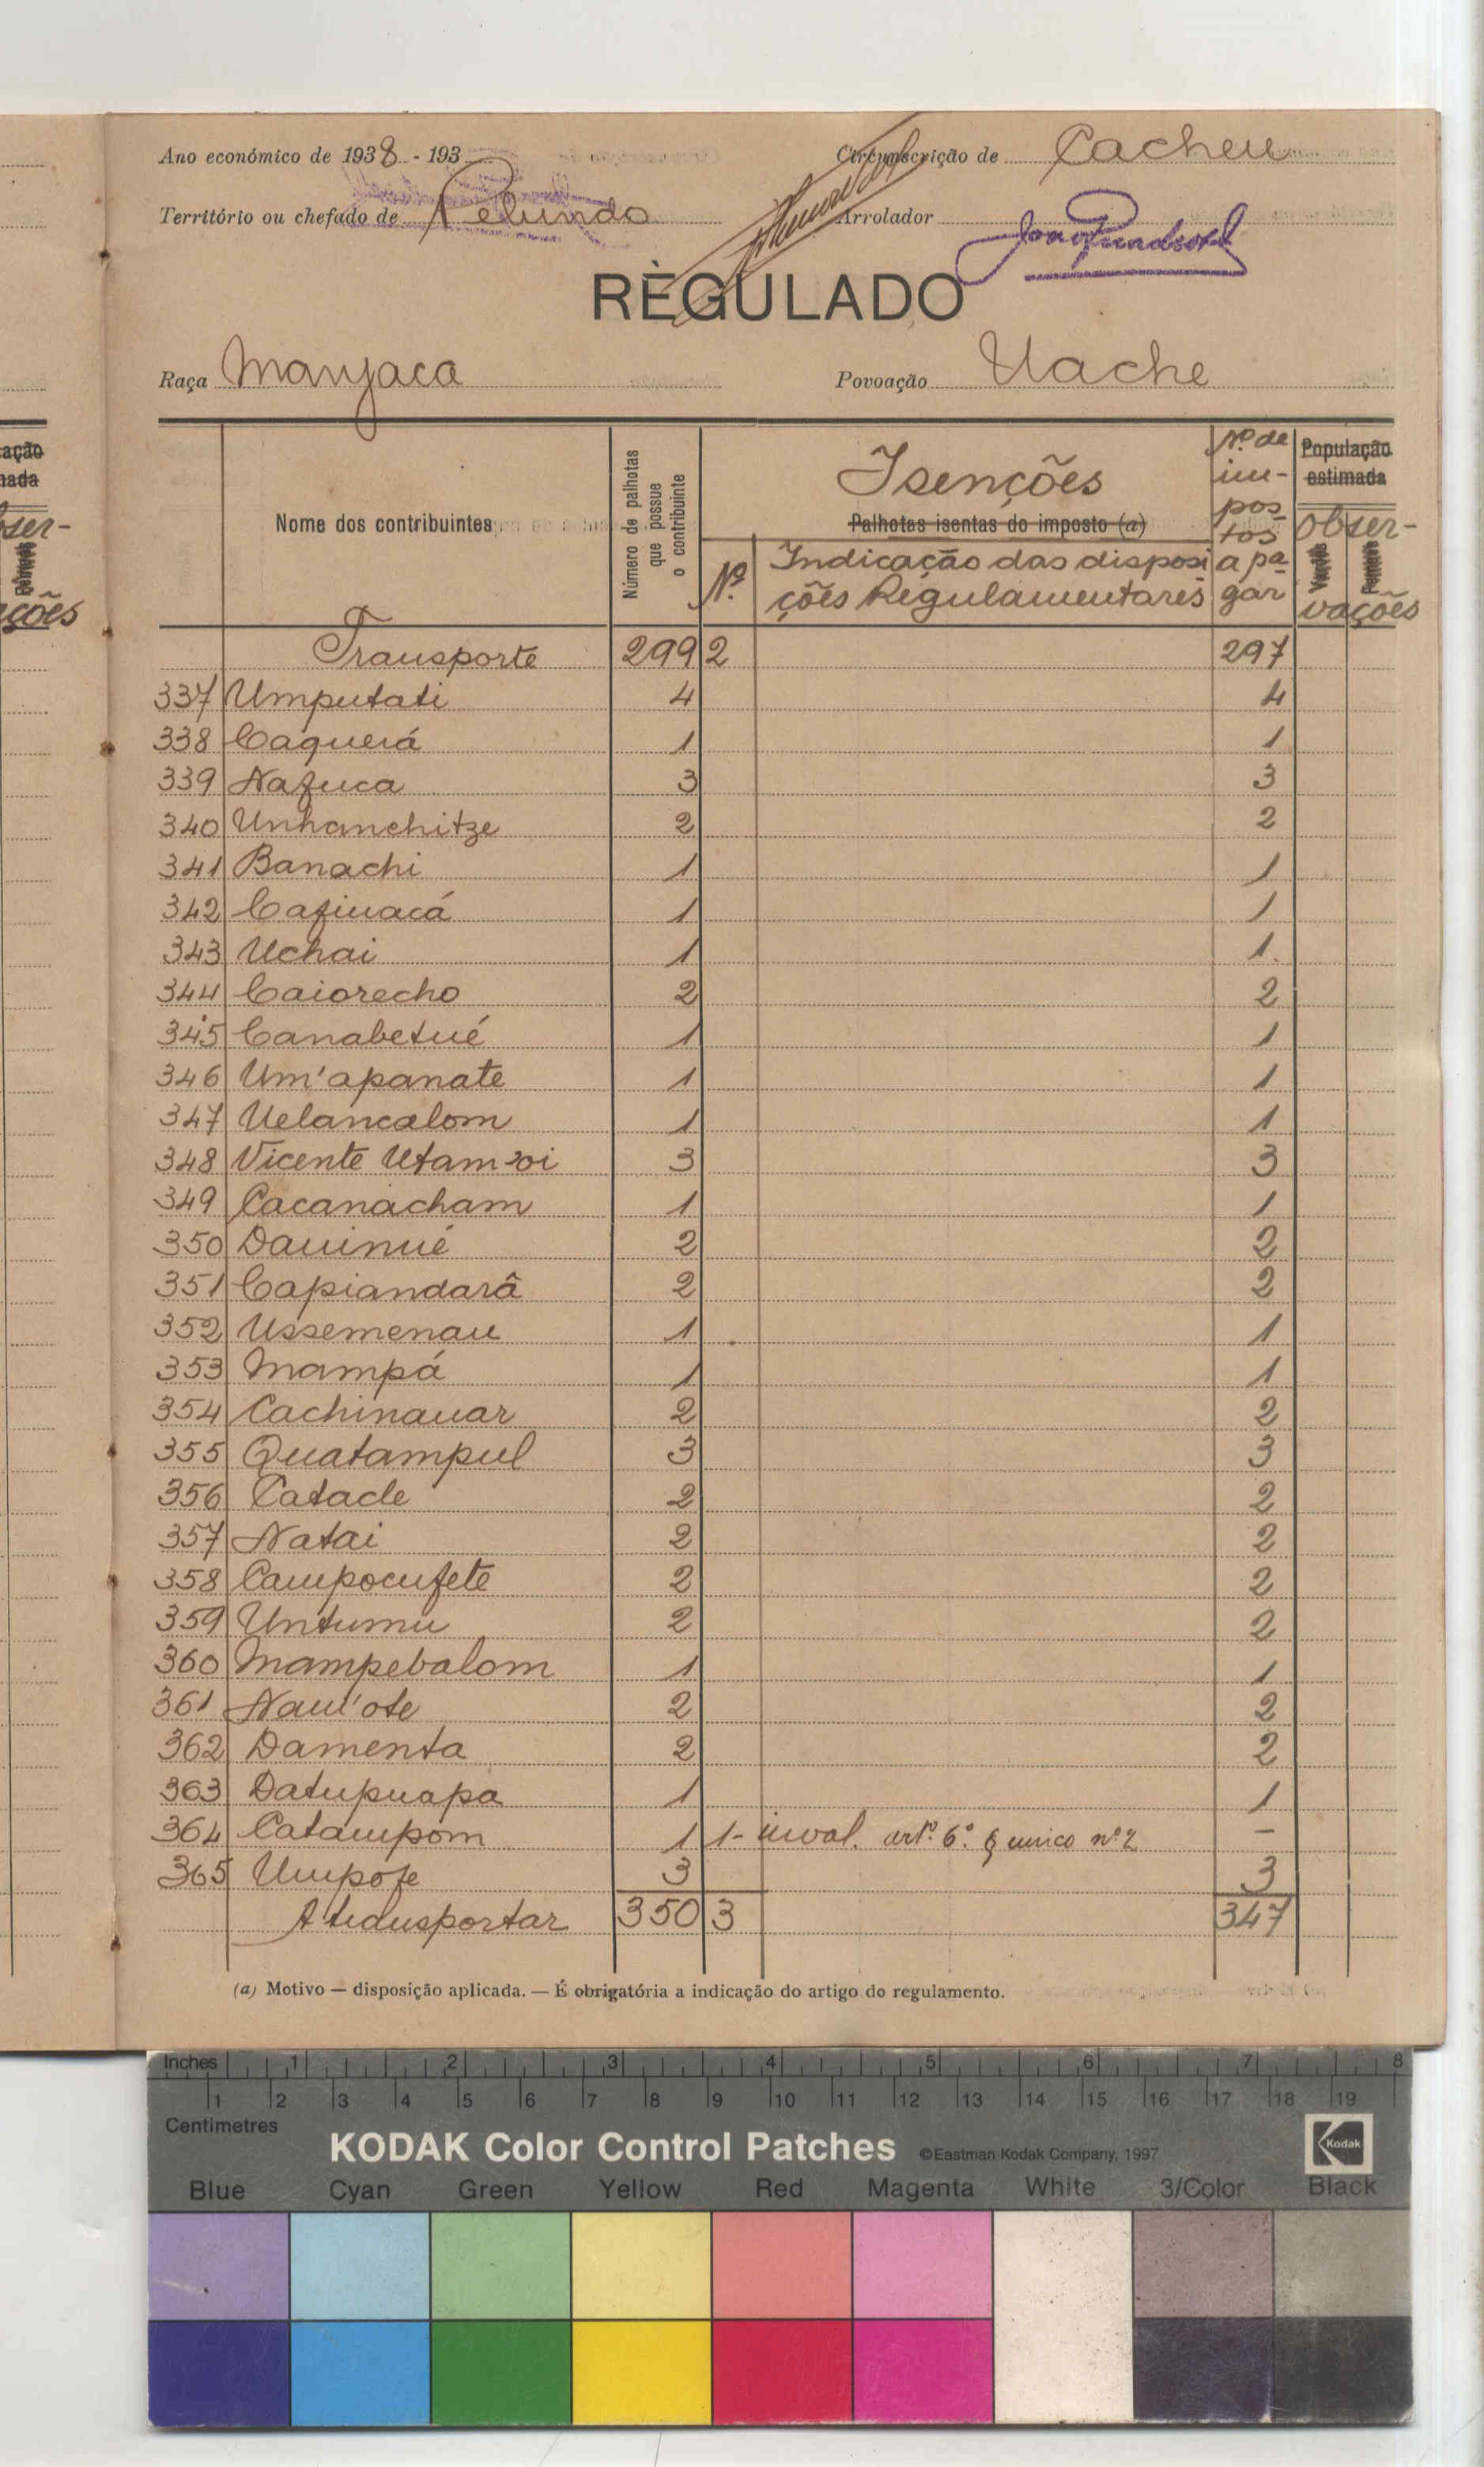 Ano económico de 1938 - 193
Circunscrição de Cacheu
Território ou chefado de Pelundo
Arrolador
RÈGULADO
Raça Manjaca
Povoação Uache
Nome dos contribuintes
Número de palhotas que possue o contribuinte
Isenções
Palhotas isentas do imposto (a)
Nº
Indicação das disposições Regulamentares
Nº de impostos a pagar
População estimada
Observações
Transporte 299 2 297
337 Umputati 4 4
338 Caquerá 1 1
339 Nafuca 3 3
340 Unhanchitze 2 2
341 Banachi 1 1
342 Cafiuacá 1 1
343 Uchai 1 1
344 Caiorecho 2 2
345 Canabetué 1 1
346 Um'apanate 1 1
347 Uelancalom 1 1
348 Vicente 3 3
349 Cacanacham 1 1
350 Dauinué 2 2
351 Capiandarâ 2 2
352 Ussemenau 1 1
353 Mampá 1 1
354 Cachinauar 2 2
355 Quatampul 3 3
356 Catacle 2 2
357 Natai 2 2
358 Campocufete 2 2
359 Untumu 2 2
360 Mampebalom 1 1
361 Nau'ote 2 2
362 Damenta 2 2
363 Datupuapa 1 1
364 Catampom 1 1- inval. artº. 6º. § unico nº 2 –
365 Umpofe 3 3
A transportar 350 3 347
(a) Motivo — disposição aplicada. — É obrigatória a indicação do artigo do regulamento.
ação
nada
ser-
ções
Inches 1 2 3 4 5 6 7 8
1 2 3 4 5 6 7 8 9 10 11 12 13 14 15 16 17 18 19
Centimetres
KODAK Color Control Patches ©Eastman Kodak Company, 1997 Kodak
Blue Cyan Green Yellow Red Magenta White 3/Color Black